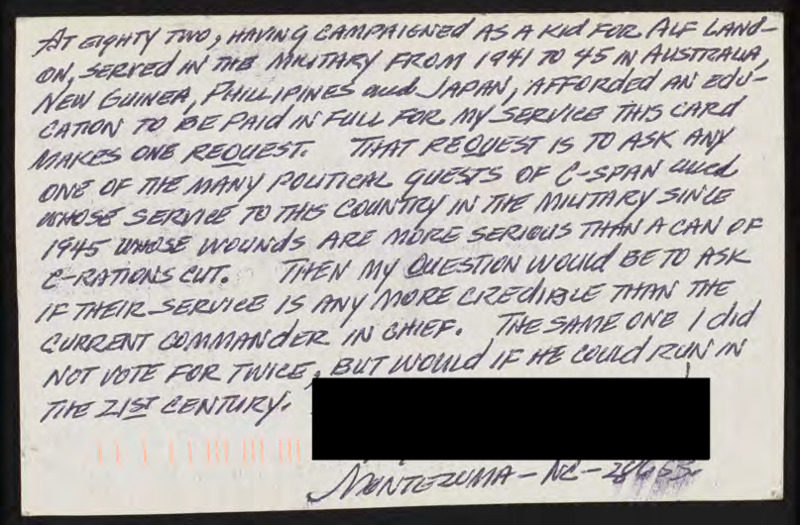 AT EIGHTY TWO, HAVING CAMPAIGNED AS A KID FOR ALF LAND-
ON, SERVED IN THE MILITARY FROM 1941 TO 45 IN AUSTRALIA,
NEW GUINEA, PHILLIPINES and JAPAN, AFFORDED AN EDU-
CATION TO BE PAID IN FULL FOR MY SERVICE THIS CARD
MAKES ONE REQUEST. THAT REQUEST IS TO ASK ANY
ONE OF THE MANY POLITICAL GUESTS OF C-SPAN
WHOSE SERVICE TO THIS COUNTRY IN THE MILITARY SINCE
1945 WHOSE WOUNDS ARE MORE SERIOUS THAN A CAN OF
C-RATIONS CUT. THEN MY QUESTION WOULD BE TO ASK
IF THEIR SERVICE IS ANY MORE CREDIBLE THAN THE
CURRENT COMMANDER IN CHIEF. THE SAME ONE I did
NOT VOTE FOR TWICE, BUT WOULD IF HE COULD RUN IN
THE 21ST CENTURY.
MONTEZUMA - NC -